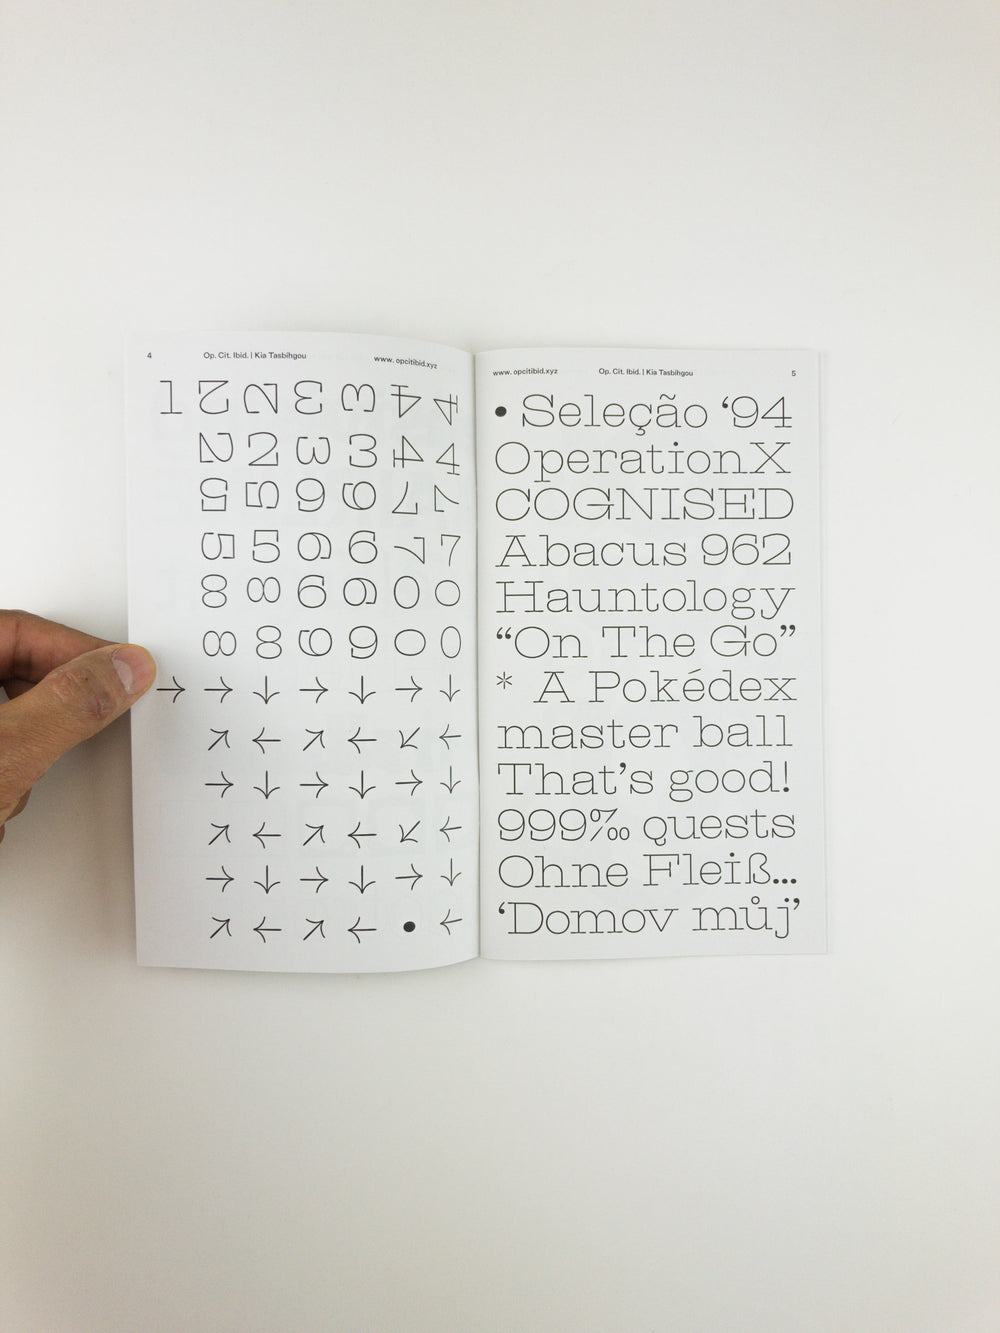 4 Op. Cit. Ibid. | Kia Tasbihgou www. opcitibid.xyz
1 2 2 3 3 4 4
2 2 3 3 4 4
5 5 6 6 7 7
5 5 6 6 7 7
8 8 9 9 0 0
8 8 9 9 0 0
→ → ↓ → ↓ → ↓
↗ ← ↗ ← ↙ ←
→ ↓ → ↓ → ↓
↗ ← ↗ ← ↙ ←
→ ↓ → ↓ → ↓
↗ ← ↗ ← • ←
www. opcitibid.xyz Op. Cit. Ibid. | Kia Tasbihgou 5
• Seleção ‘94
OperationX
COGNISED
Abacus 962
Hauntology
“On The Go”
* A Pokédex
master ball
That’s good!
999‰ quests
Ohne Fleiß...
‘Domov můj’